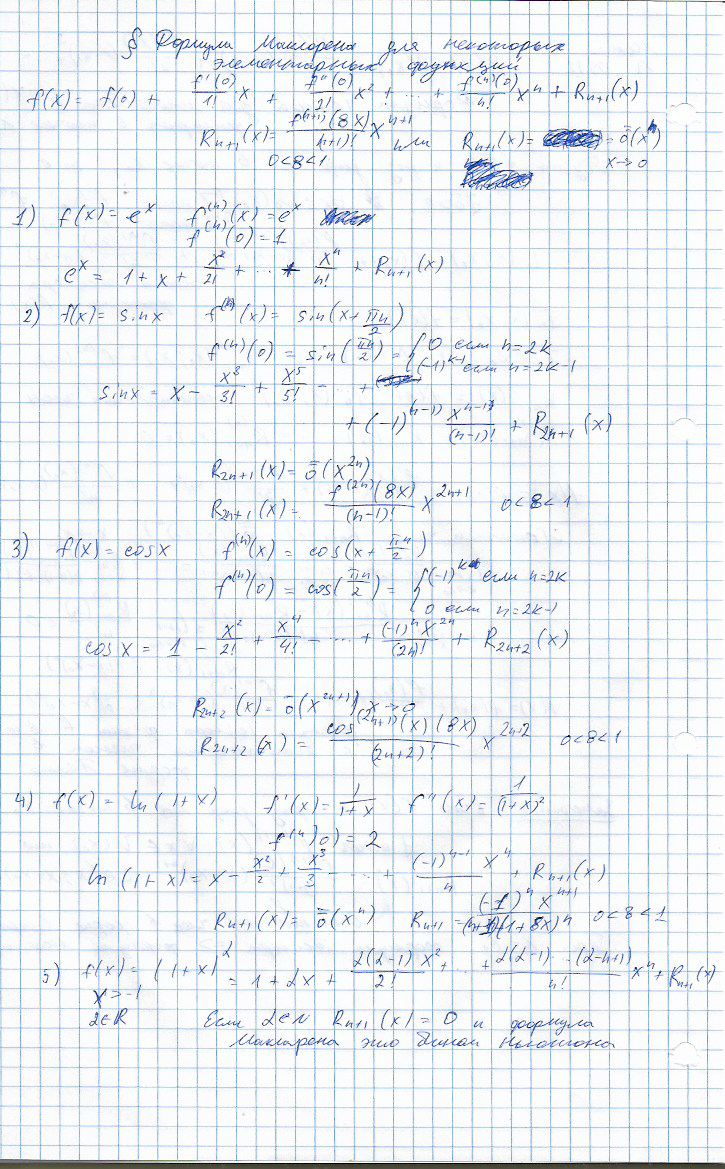 § Формула Маклорена для некоторых
элементарных функций
f(x) = f(0) + f'(0)/1! x + f''(0)/2! x² + ... + f⁽ⁿ⁾(0)/n! xⁿ + Rₙ₊₁(x)
Rₙ₊₁(x) = f⁽ⁿ⁺¹⁾(θx)/(n+1)! xⁿ⁺¹ или Rₙ₊₁(x) = = ō(xⁿ)
0<θ<1 x→0
1) f(x) = eˣ f⁽ⁿ⁾(x) = eˣ
f⁽ⁿ⁾(0) = 1
eˣ = 1 + x + x²/2! + ... + xⁿ/n! + Rₙ₊₁(x)
2) f(x) = sinx f⁽ⁿ⁾(x) = sin(x + πn/2)
f⁽ⁿ⁾(0) = sin(πn/2) = { 0 если n=2k
(-1)ᵏ⁻¹ если n=2k-1
sinx = x - x³/3! + x⁵/5! - ... +
+ (-1)⁽ⁿ⁻¹⁾ xⁿ⁻¹/(n-1)! + R₂ₙ₊₁(x)
R₂ₙ₊₁(x) = ō(x²ⁿ)
R₂ₙ₊₁(x) = f⁽²ⁿ⁾(θx)/(n-1)! x²ⁿ⁺¹ 0<θ<1
3) f(x) = cosx f⁽ⁿ⁾(x) = cos(x + πn/2)
f⁽ⁿ⁾(0) = cos(πn/2) = { (-1)ᵏ если n=2k
0 если n=2k-1
cosx = 1 - x²/2! + x⁴/4! - ... + (-1)ⁿx²ⁿ/(2n)! + R₂ₙ₊₂(x)
R₂ₙ₊₂(x) = ō(x²ⁿ⁺¹) x→0
R₂ₙ₊₂(x) = cos⁽²ⁿ⁺¹⁾(x)(θx)/(2n+2)! x²ⁿ⁺² 0<θ<1
4) f(x) = ln(1+x) f'(x) = 1/(1+x) f''(x) = 1/(1+x)²
f⁽ⁿ⁾(0) = 2
ln(1+x) = x - x²/2 + x³/3 - ... + (-1)ⁿ⁻¹xⁿ/n + Rₙ₊₁(x)
Rₙ₊₁(x) = ō(xⁿ) Rₙ₊₁ = (-1)ⁿxⁿ⁺¹/(n+1)(1+θx)ⁿ 0<θ<1
5) f(x) = (1+x)^α = 1 + αx + α(α-1)x²/2! + ... + α(α-1)...(α-n+1)/n! xⁿ + Rₙ₊₁(x)
x>-1
α∈R Если α∈N Rₙ₊₁(x) = 0 и формула
Маклорена это бином Ньютона